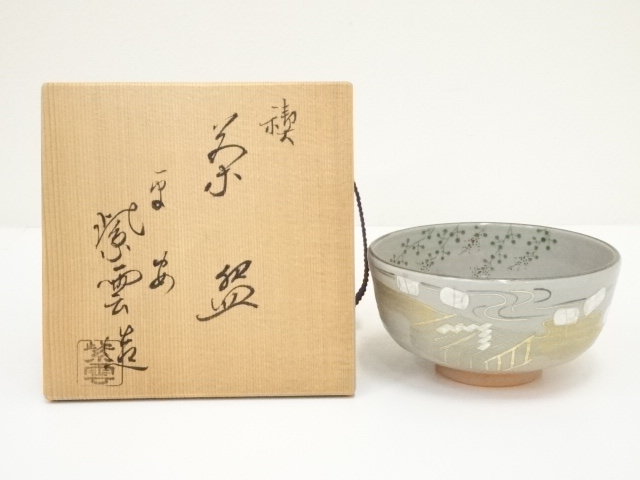 禊
茶盌
平安
紫雲造
紫雲